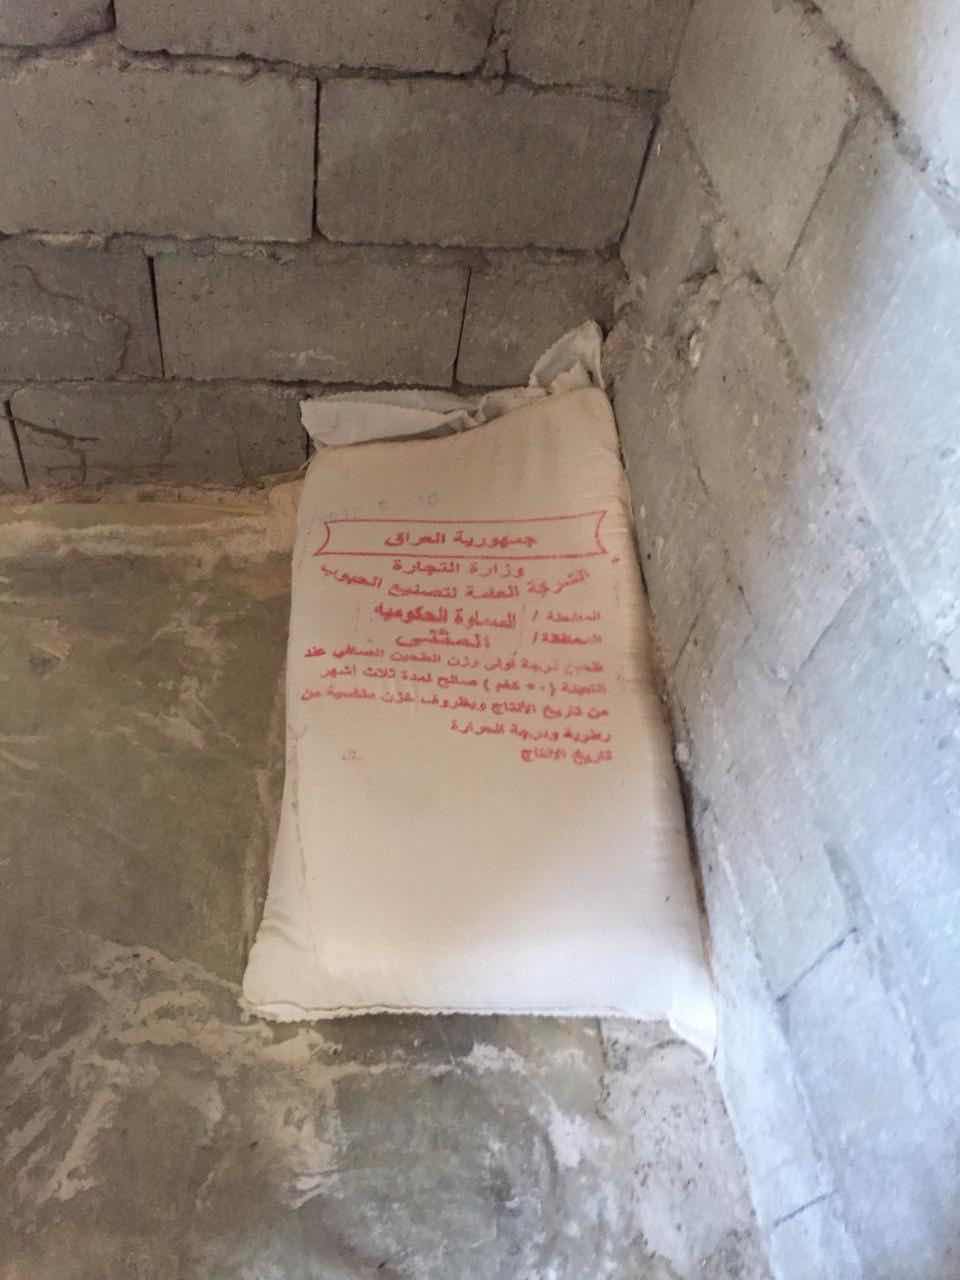 جمهورية العراق
وزارة التجارة
الشركة العامة لتصنيع الحبوب
المطحنة / السماوة الحكومية
المحافظة / المثنى
طحين درجة أولى وزن الطحين الصافي عند
التعبئة ( ٥٠ كغم ) صالح لمدة ثلاث أشهر
من تاريخ الانتاج وبظروف خزن مناسبة من
رطوبة ودرجة الحرارة
تاريخ الانتاج